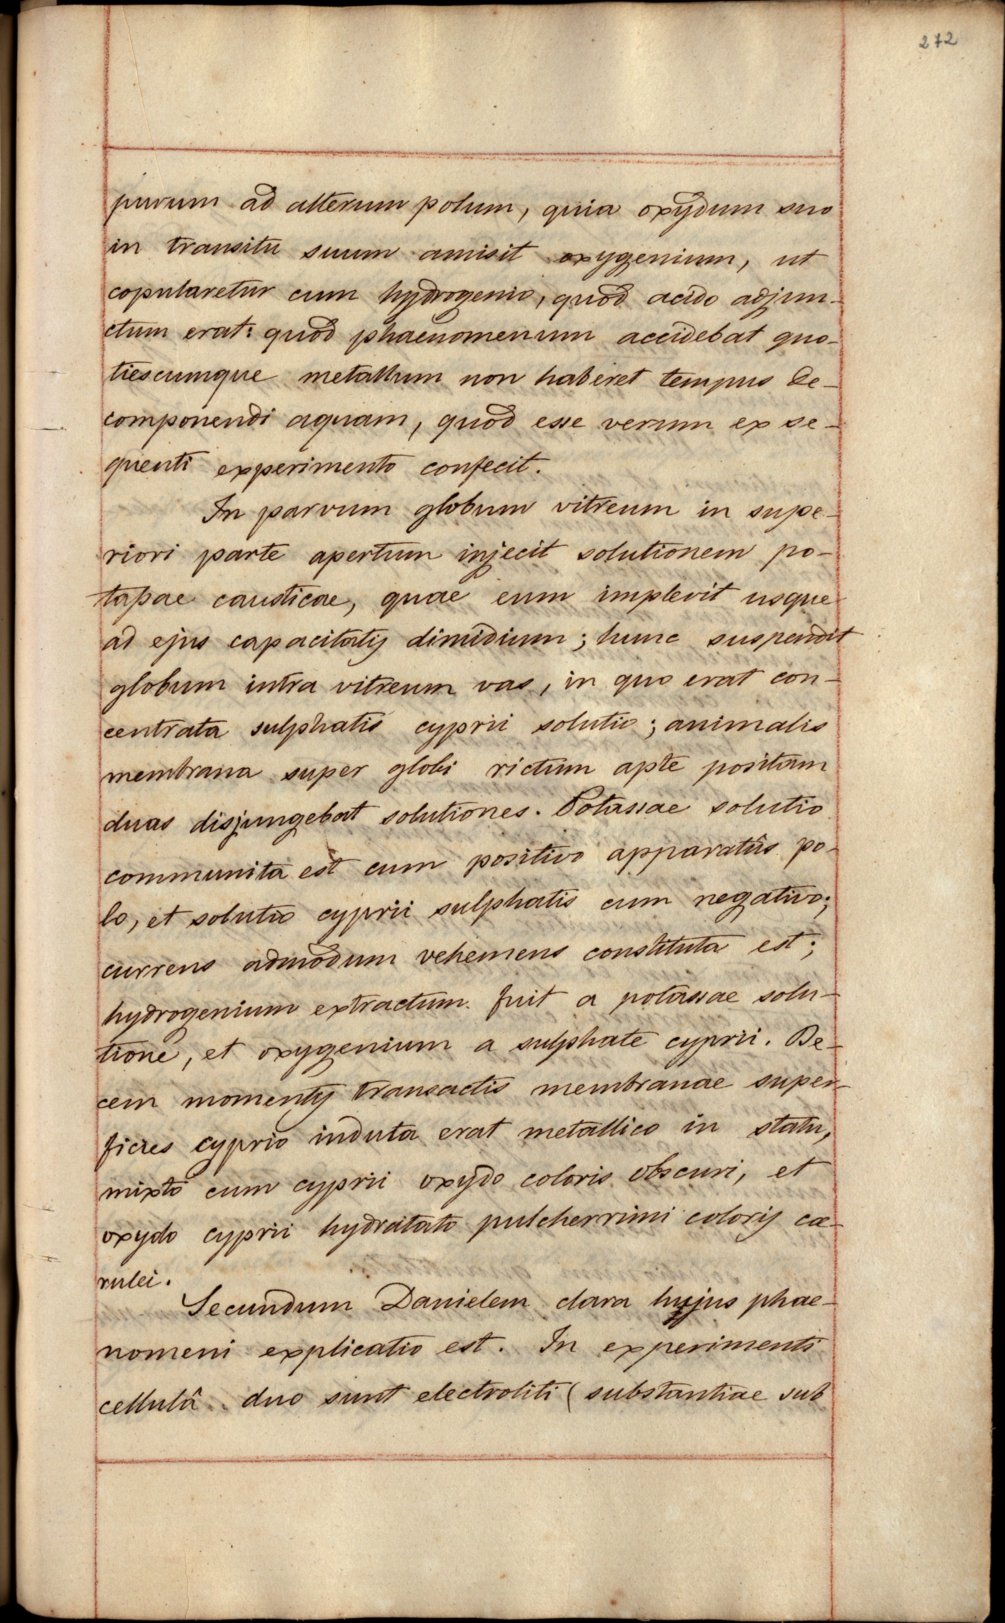 272
purum ad alterum polum, quia oxydum suo
in transitu suum amisit oxygenium, ut
copularetur cum hydrogenio, quod acido adjun-
ctum erat: quod phaenomenum accidebat quo-
tiescumque metallum non haberet tempus de-
componendi aquam, quod esse verum ex se-
quenti experimento confecit.
In parvum globum vitreum in supe-
riori parte apertum injecit solutionem po-
taſsae causticae, quae eum implevit usque
ad ejus capacitatis dimidium; hunc suspendit
globum intra vitreum vas, in quo erat con-
centrata sulphatis cyprii solutio; animalis
membrana super globi rictum apte positam
duas disjungebat solutiones. Potassae solutio
communita est cum positivo apparatûs po-
lo, et solutio cyprii sulphatis cum negativo;
currens admodum vehemens constituta est;
hydrogenium extractum fuit a potassae solu-
tione, et oxygenium a sulphate cyprii. De-
cem momentis transactis membranae super-
ficies cyprio induta erat metallico in statu,
mixto cum cyprii oxydo coloris obscuri, et
oxydo cyprii hydratato pulcherrimi coloris cæ-
rulei.
Secundum Danielem clara hujus phae-
nomeni explicatio est. In experimenti
cellulâ duo sunt electroliti (substantiae sub